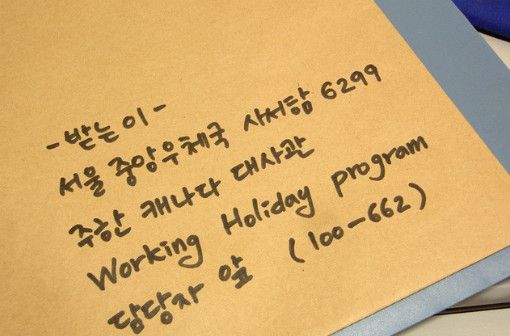 -받는이-
서울 중앙우체국 사서탐 6299
주한 캐나다 대사관
Working Holiday program
담당자 앞 (100-662)